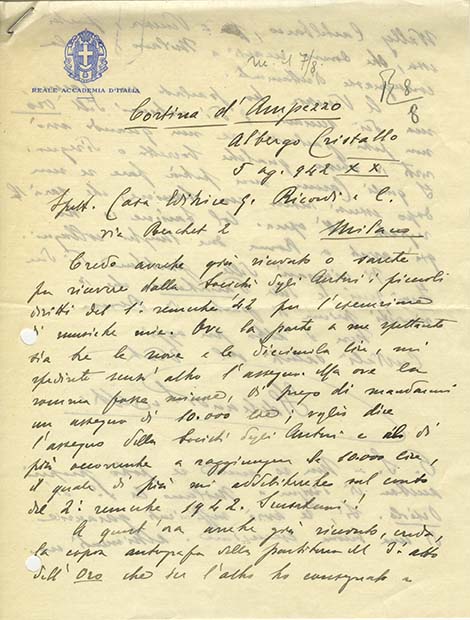 REALE ACCADEMIA D'ITALIA
ric. il 7/8
R 8
8
Cortina d'Ampezzo
Albergo Cristallo
5 ag. 942 XX
Spett. Casa Editrice G. Ricordi e C.
via Berchet 2 Milano
Credo avrete già ricevuto o sarete
per ricevere dalla Società degli Autori i piccoli
diritti del 1º semestre 42 per l'esecuzione
di musiche mie. Ove la parte a me spettante
sia tra le nove e le diecimila lire, mi
spedirete senz'altro l'assegno. Ma ove la
somma fosse minore, Vi prego di mandarmi
un assegno di 10.000 lire; voglio dire
l'assegno della Società degli Autori e di
più occorrente a raggiungere le 10.000 lire,
il quale di più mi addebiterete sul conto
del 2º semestre 1942. Scusatemi!
A quest'ora avrete già ricevuto, credo,
la copia autografa della partitura del 3º atto
dell'Oro che ier l'altro ho consegnato a